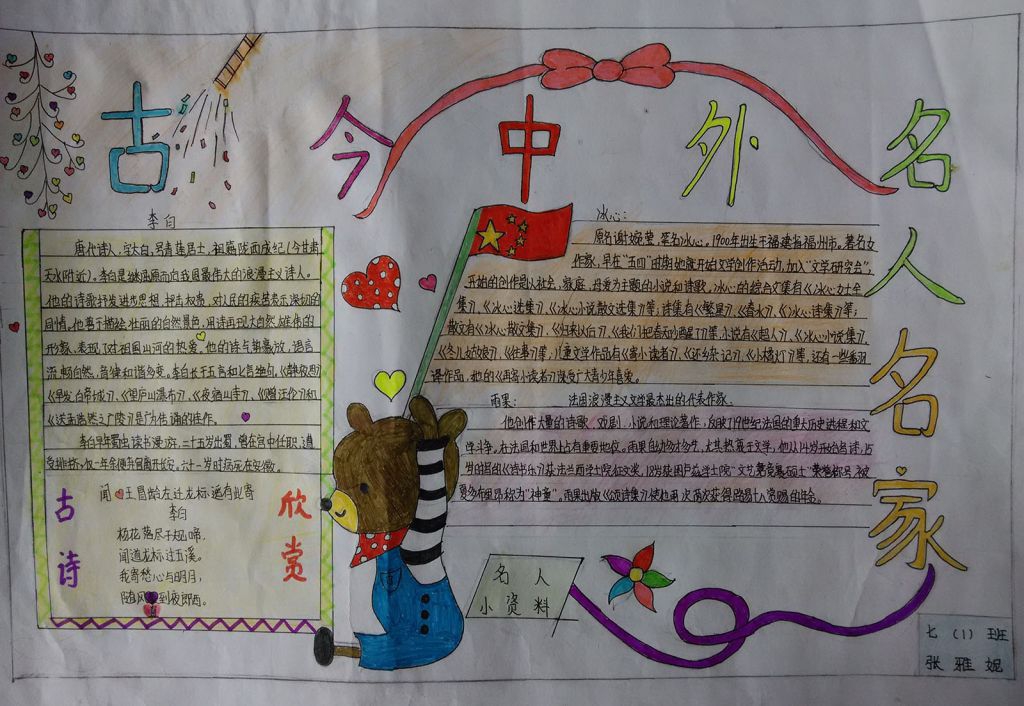 古今中外名人名家
李白
唐代诗人，字太白，号青莲居士，祖籍陇西成纪（今甘肃
天水附近）。李白是继屈原而向我国最伟大的浪漫主义诗人。
他的诗歌抒发进步思想，抨击权贵，对人民的疾苦表示深切的
同情。他善于描绘壮丽的自然景色，用诗再现大自然雄伟的
形象，表现了对祖国山河的热爱。他的诗气势豪放，语言
流畅自然，音律和谐多变。李白长于五言和七言绝句，《静夜思》
《早发白帝城》、《望庐山瀑布》、《夜宿山寺》、《赠汪伦》和
《送孟浩然之广陵》是广为传诵的佳作。
李白早年蜀中读书漫游，二十五岁出蜀，曾在宫中任职，遭
受排挤，仅一年余便弃官离开长安。六十一岁时病死在安徽。
古诗
欣赏
闻王昌龄左迁龙标遥有此寄
李白
杨花落尽子规啼，
闻道龙标过五溪。
我寄愁心与明月，
随风到夜郎西。
冰心：
原名谢婉莹，笔名冰心。1900年出生于福建省福州市。著名女
作家，早在“五四”时期她就开始文学创作活动，加入“文学研究会”，
开始的创作是以社会，家庭，母爱为主题的小说和诗歌，冰心的综合文集有《冰心文全
集》、《冰心选集》、《冰心小说散文选集》等；诗集有《繁星》、《春水》、《冰心诗集》等；
散文有《冰心散文集》、《归来以后》、《我们把春天吵醒了》等；小说有《超人》、《冰心小说集》、
《冬儿姑娘》、《往事》等；儿童文学作品有《寄小读者》、《还乡杂记》、《小橘灯》等，还有一些翻
译作品，她的《再寄小读者》深受广大青少年喜爱。
雨果：
法国浪漫主义文学最杰出的代表作家，
他创作大量的诗歌、戏剧、小说和理论著作，反映了19世纪法国的重大历史进程和文
学斗争，在法国和世界占有重要地位。雨果自幼有才多艺，尤其热衷于文学，他从14岁开始写诗，15
岁的写的《读书乐》获法兰西学士院征文奖，
夏多布里昂称为“神童”。雨果出版《颂诗集》使他再次两次获得路易十八赏赐的年金。
名人
小资料
七（1）班
张雅妮